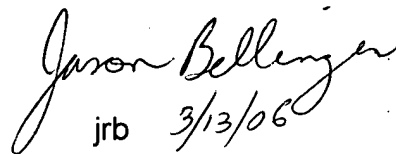 Jason Bellinger
jrb 3/13/06